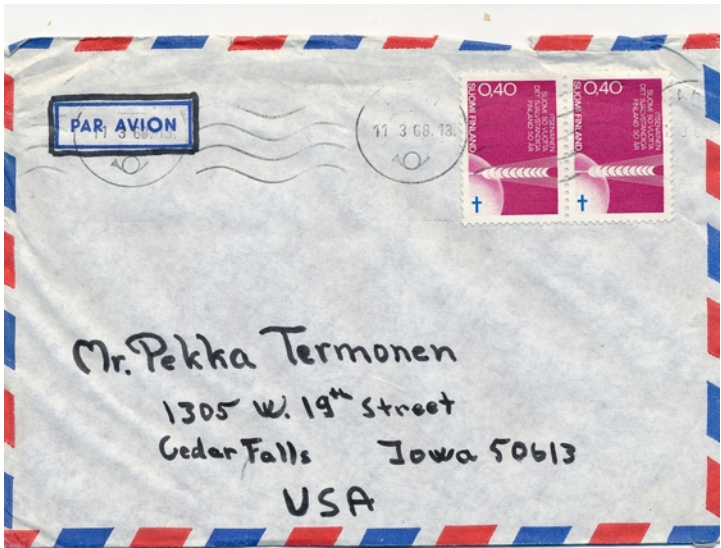 PAR AVION
11 3 68. 18.
11 3 68. 18.
0,40
SUOMI FINLAND
ITSENÄINEN
SUOMI 50 VUOTTA
DET SJÄLVSTÄNDIGA
FINLAND 50 ÅR
0,40
SUOMI FINLAND
ITSENÄINEN
SUOMI 50 VUOTTA
DET SJÄLVSTÄNDIGA
FINLAND 50 ÅR
Mr. Pekka Termonen
1305 W. 19th Street
Cedar Falls Iowa 50613
USA